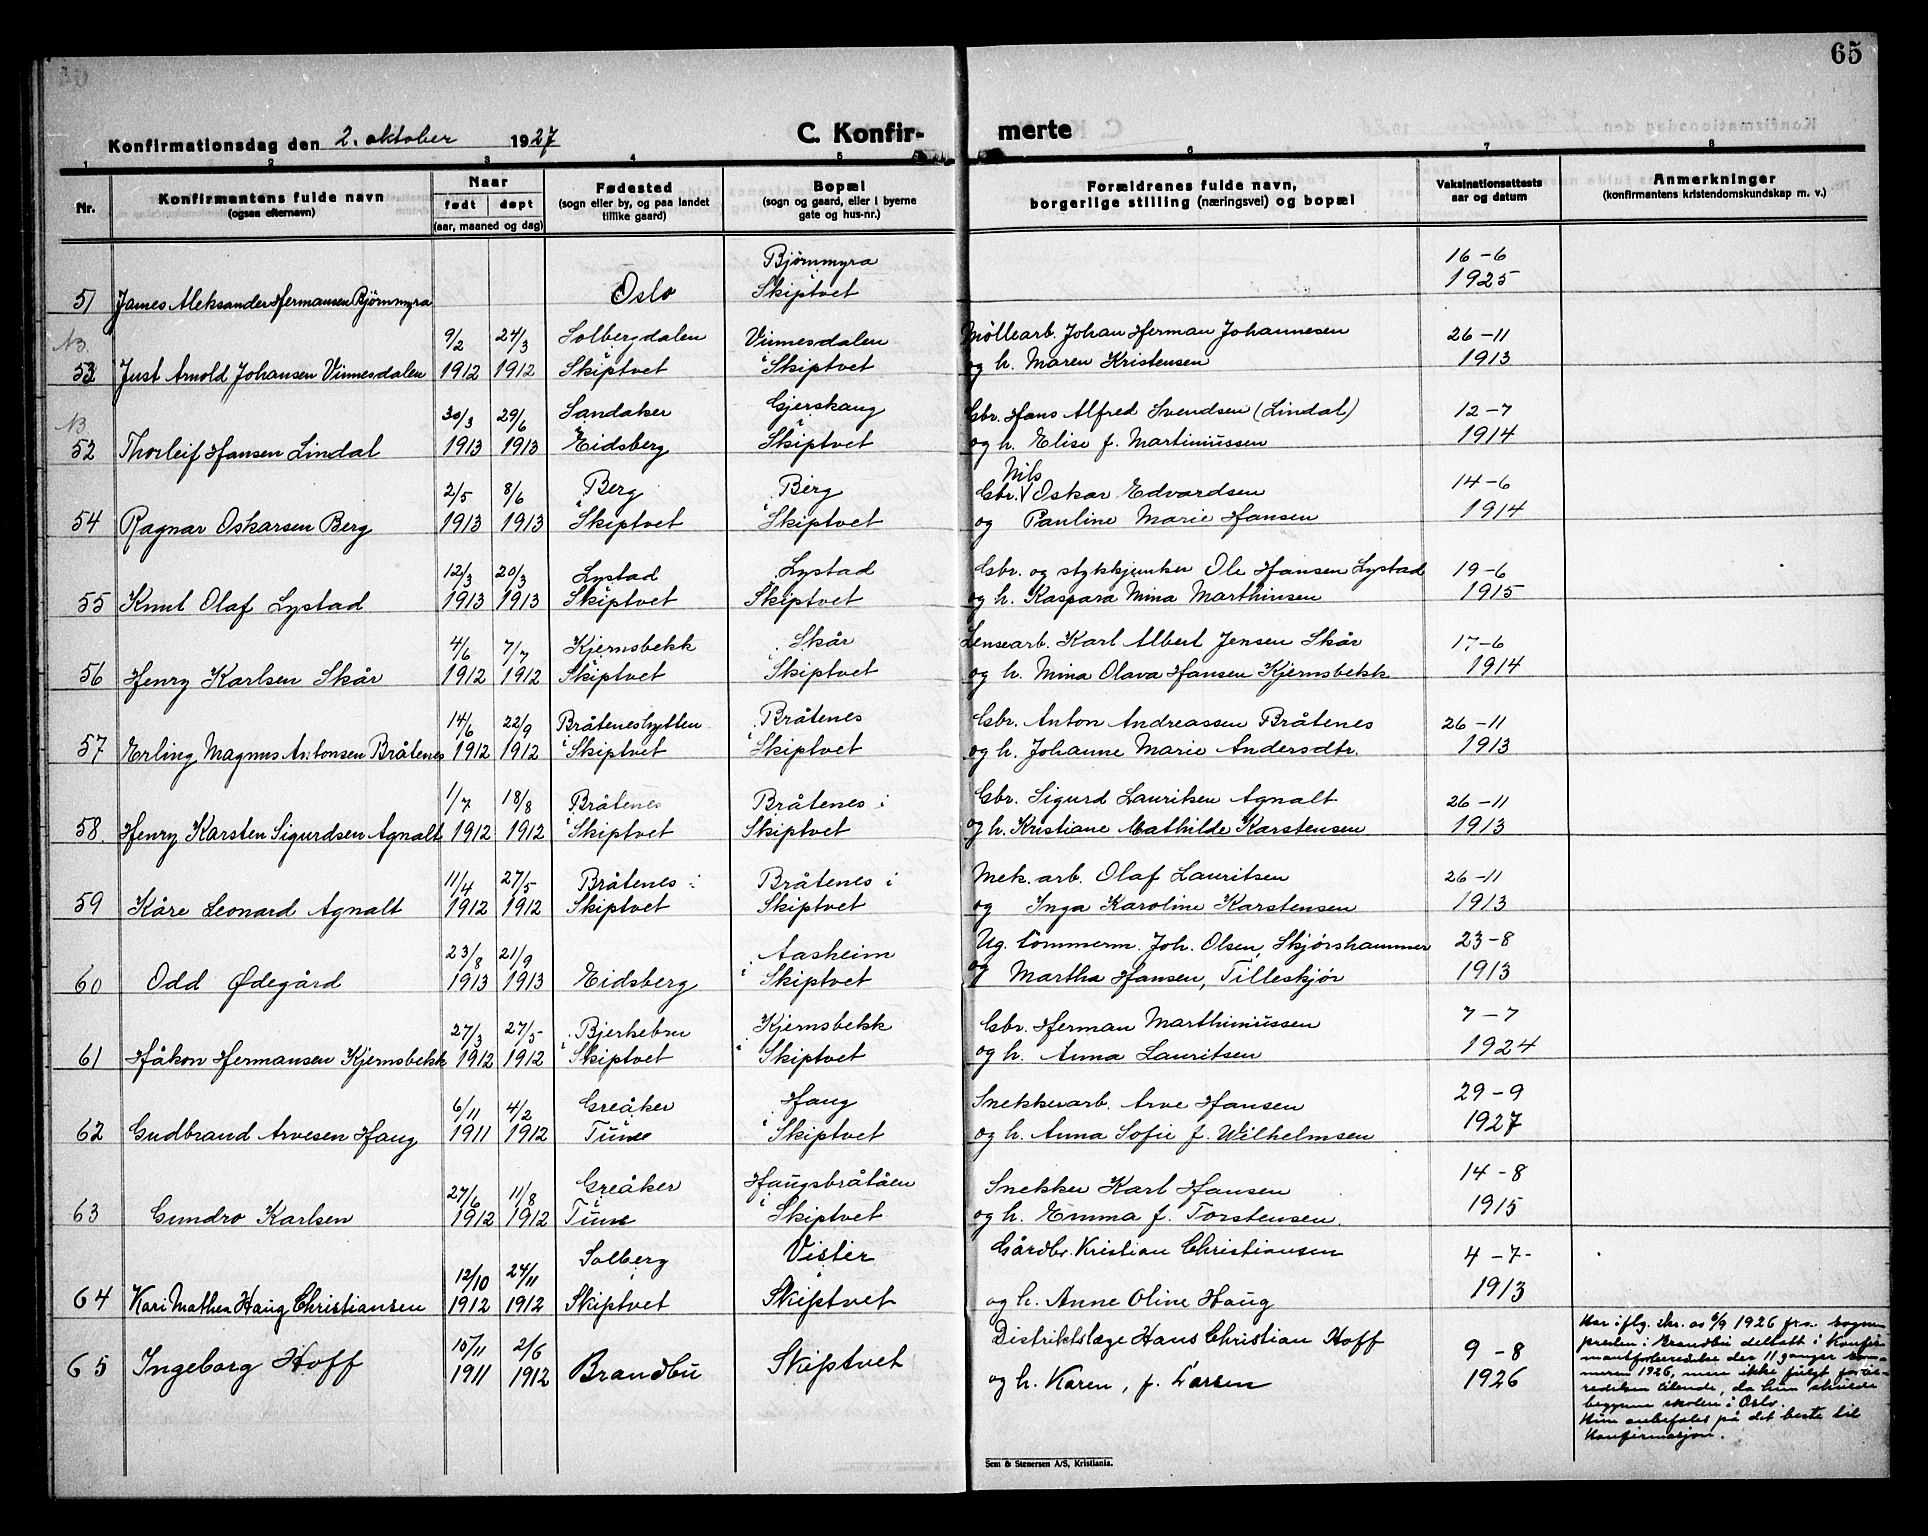 65
Konfirmationsdag den 2. oktober 1927
C. Konfir- merte
1 2 3 4 5 6 7 8
Nr.
Konfirmantens fulde navn
(ogsaa efternavn)
Naar
født døpt
(aar, maaned og dag)
Fødested
(sogn eller by, og paa landet
tillike gaard)
Bopæl
(sogn og gaard, eller i byerne
gate og hus-nr.)
Forældrenes fulde navn,
borgerlige stilling (næringsvei) og bopæl
Vaksinationsattests
aar og datum
Anmerkninger
(konfirmantens kristendomskundskap m. v.)
Bjørnmyra 16-6
51 James Aleksander Hermansen Bjørnmyra Oslo Skiptvet 1925
NB. 9/2 24/3 Solbergdalen Vinnesdalen Møllearb. Johan Herman Johannesen 26-11
53 Just Arnold Johansen Vinnesdalen 1912 1912 i Skiptvet i Skiptvet og h. Maren Kristensen 1913
NB. 30/3 29/6 Sandaker Gjerskaug Gbr. Hans Alfred Svendsen (Lindal) 12-7
52 Thorleif Hansen Lindal 1913 1913 i Eidsberg i Skiptvet og h. Elise f. Martiniussen 1914
Nils
2/5 8/6 Berg Berg Gbr. V Oskar Edvardsen 14-6
54 Ragnar Oskarsen Berg 1913 1913 i Skiptvet i Skiptvet og Pauline Marie Hansen 1914
12/3 20/3 Lystad Lystad Gbr. og stykkjunker Ole Hansen Lystad 19-6
55 Knut Olaf Lystad 1913 1913 i Skiptvet i Skiptvet og h. Kaspara Mina Marthinsen 1915
4/6 7/7 Kjernsbekk Skår Lensearb. Karl Albert Jensen Skår 17-6
56 Henry Karlsen Skår 1912 1912 i Skiptvet i Skiptvet og h. Mina Olava Hansen Kjernsbekk 1914
14/6 22/9 Bråteneshytten Bråtenes Gbr. Anton Andreassen Bråtenes 26-11
57 Erling Magnus Antonsen Bråtenes 1912 1912 i Skiptvet i Skiptvet og h. Johanne Marie Andersdtr. 1913
1/7 18/8 Bråtenes Bråtenes i Gbr. Sigurd Lauritsen Agnalt 26-11
58. Henry Karsten Sigurdsen Agnalt 1912 1912 i Skiptvet Skiptvet og h. Kristiane Mathilde Karstensen 1913
11/4 27/5 Bråtenes i Bråtenes i Mek. arb. Olaf Lauritsen 26-11
59 Kåre Leonard Agnalt 1912 1912 Skiptvet Skiptvet og Inga Karoline Karstensen 1913
23/8 21/9 Aasheim Ug. tømmerm. Joh. Olsen, Skjørshammer 23-8
60 Odd Ødegård 1913 1913 Eidsberg i Skiptvet og Martha Hansen, Tilleskjør 1913
27/3 27/5 Bjerkebru Kjernsbekk Gbr. Herman Marthiniussen 7-7
61 Håkon Hermansen Kjernsbekk 1912 1912 i Skiptvet i Skiptvet og h. Anna Lauritsen 1924
6/11 4/2 Greåker Haug Snekkerarb. Arve Hansen 29-9
62 Gudbrand Arvesen Haug 1911 1912 i Tune i Skiptvet og h. Anna Sofie f. Wilhelmsen 1927
27/6 11/8 Greåker Haugsbråtåen Snekker Karl Hansen 14-8
63 Gundro Karlsen 1912 1912 i Tune i Skiptvet og h. Emma f. Torstensen. 1915
12/10 24/11 Solberg Vister Gårdbr. Kristian Christiansen 4-7-
64 Kari Mathea Haug Christiansen 1912 1912 i Skiptvet i Skiptvet og h. Anne Oline Haug 1913
15/11 2/6 Distriktslæge Hans Christian Hoff 9-8
65 Ingeborg Hoff 1911 1912 Brandbu Skiptvet og h. Karen, f. Larsen 1926
Har iflg. skr. av 6/9 1926 fra sogne-
presten i Brandbu deltatt i Konfir-
mantforberedelse der 11 ganger som-
meren 1926, men ikke fulgt forbe-
redelsen tilende, da hun skulde
begynne skolen i Oslo.
Hun anbefales på det beste til
Konfirmasjon.
Sem & Stenersen A/S, Kristiania.